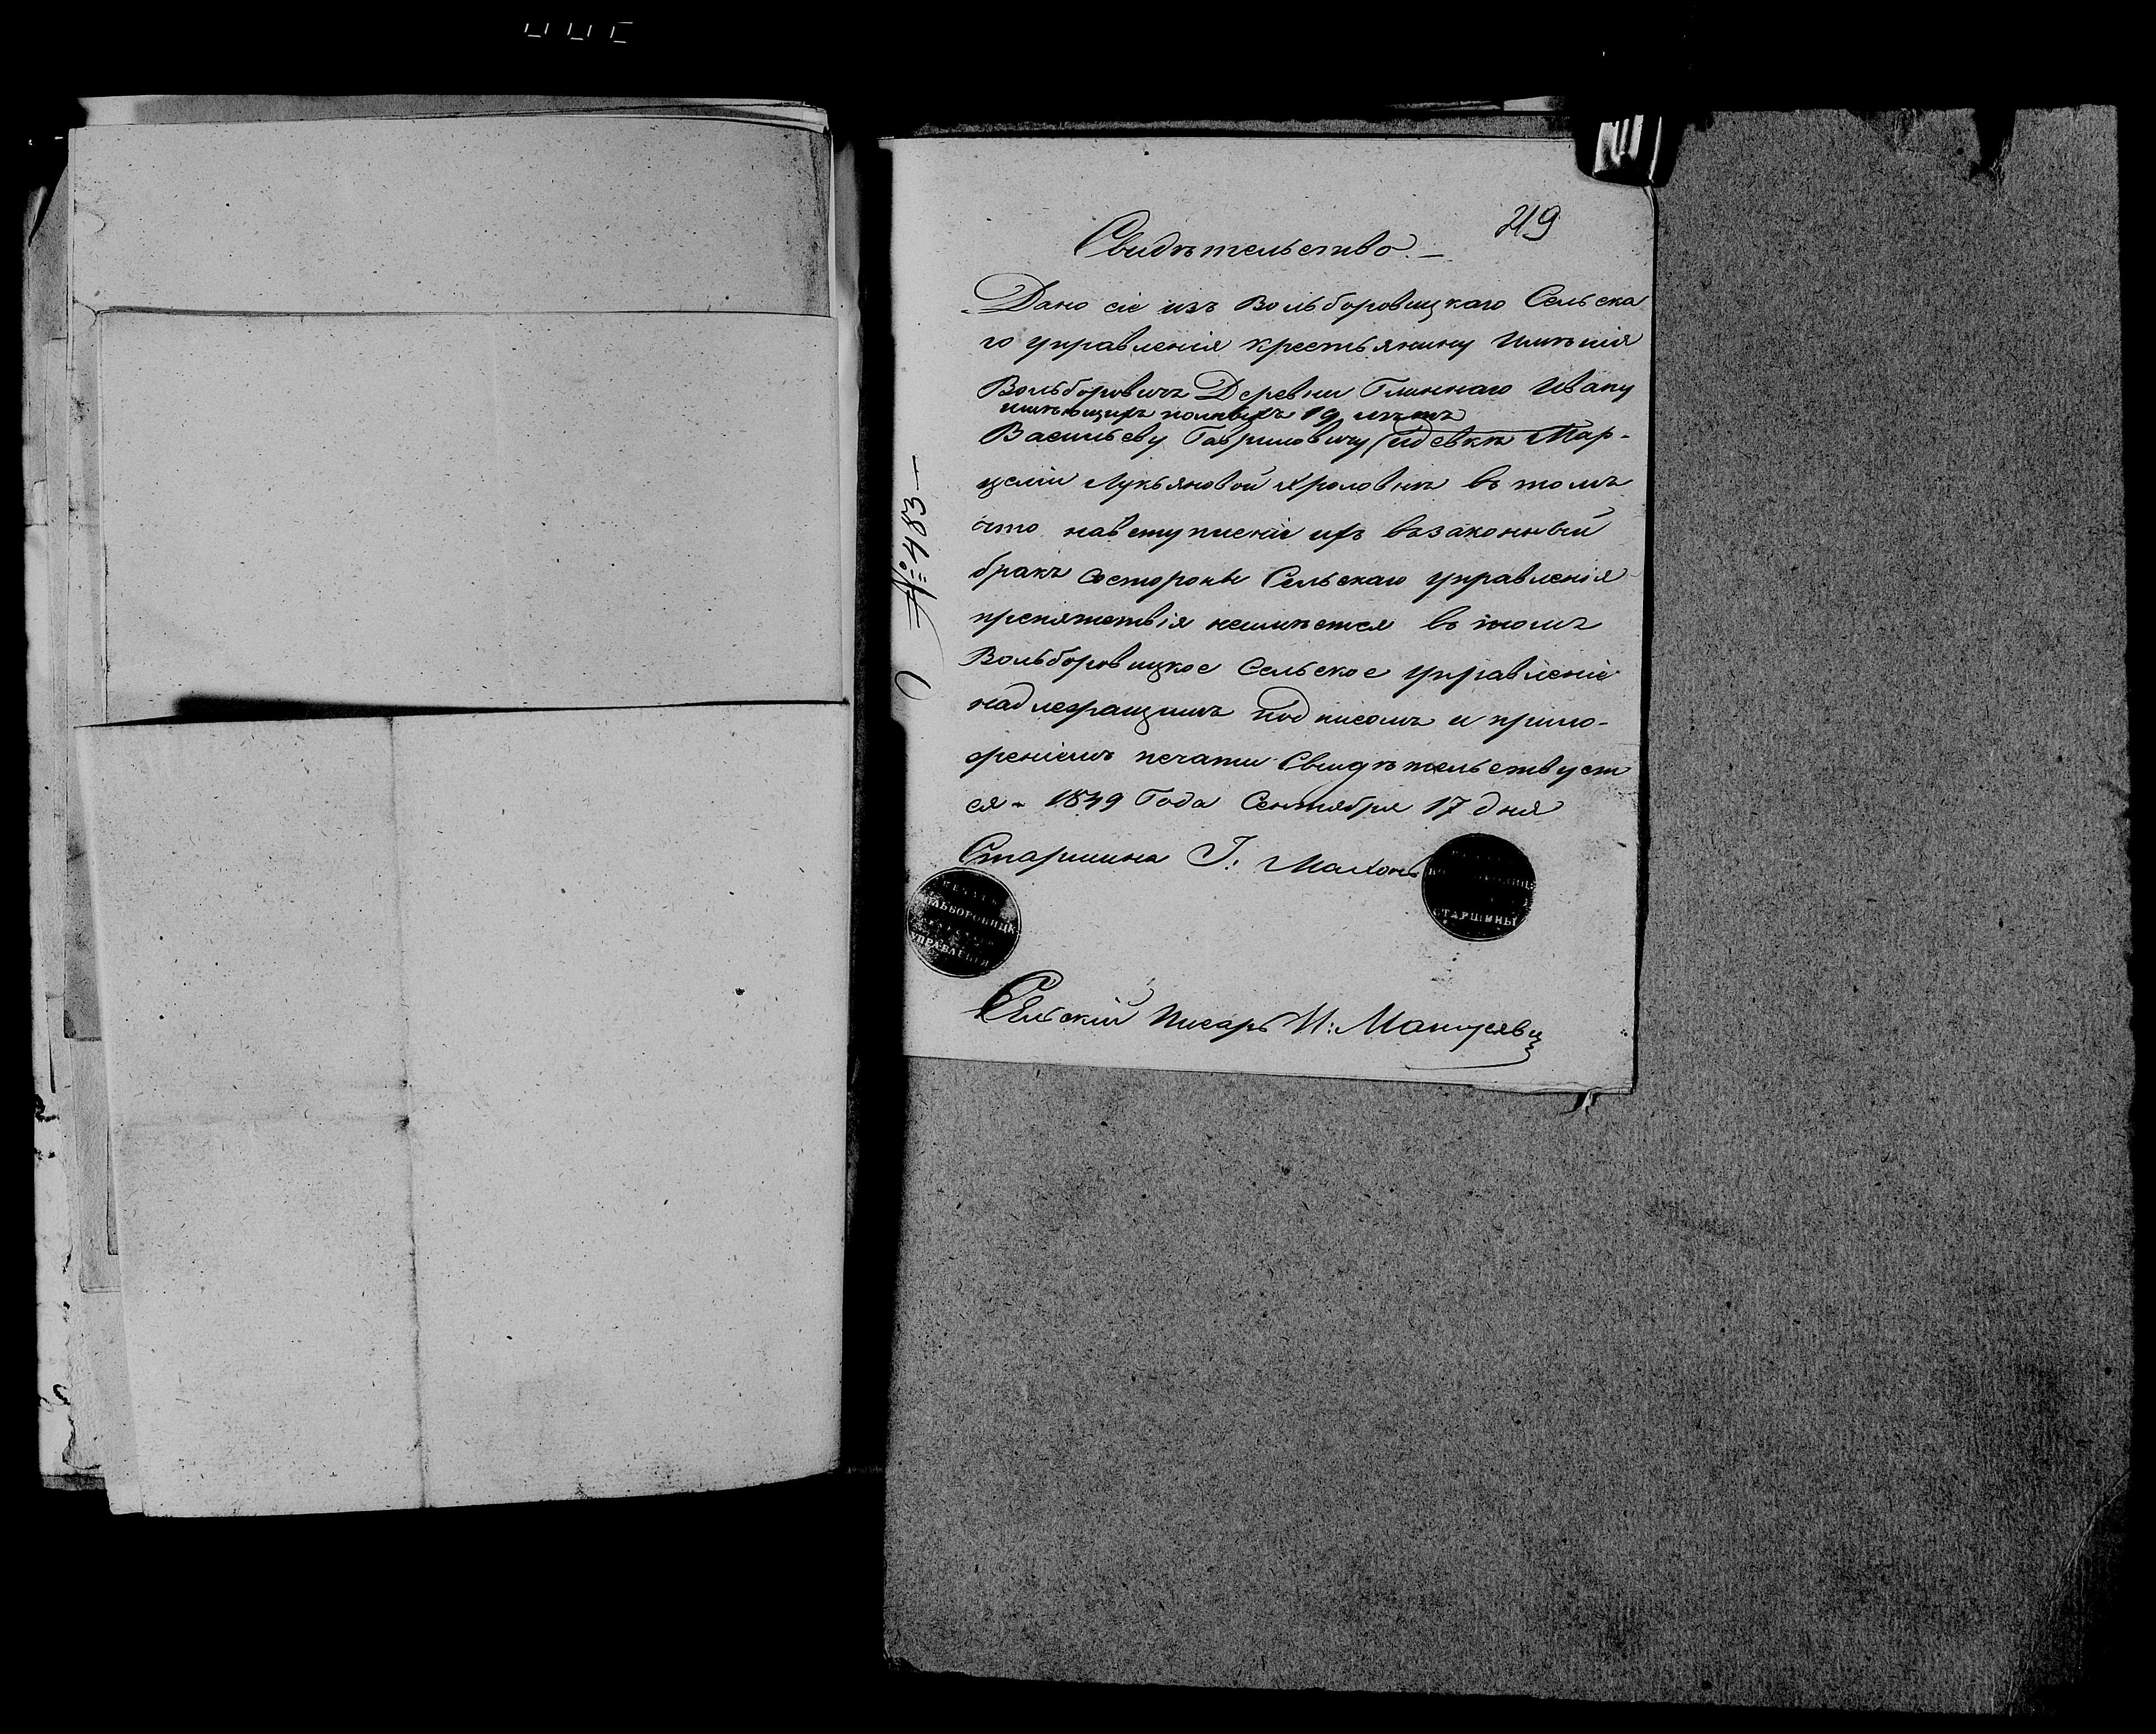 219
Свидѣтельство. —
Дано сіе изъ Вольборовицкаго Сельска
го управленія крестьянину Имѣнія
Вольборовичъ Деревни Глиннаго Ивану
имѣющихъ полныхъ 19 лѣтъ
Васильеву Гавриловичу и девкѣ Мар-
целіи Лукьяновой Хроловнѣ въ томъ
что навступленіе ихъ взаконный
бракъ состороны Сельскаго управленія
препятствія неимѣется въ томъ
Вольборовицкое Сельское управленіе
надлежащимъ подписомъ и прило-
женіемъ печати Свидѣтельствует
ся - 18 9 Года Сентября 17 дня
Старшина І:
СТАРШИНЫ
ПЕЧАТЬ
ВОЛЬБОРОВИЦК
УПРАВЛЕНІЯ
Сельскій Писарь И:
№ 483 —